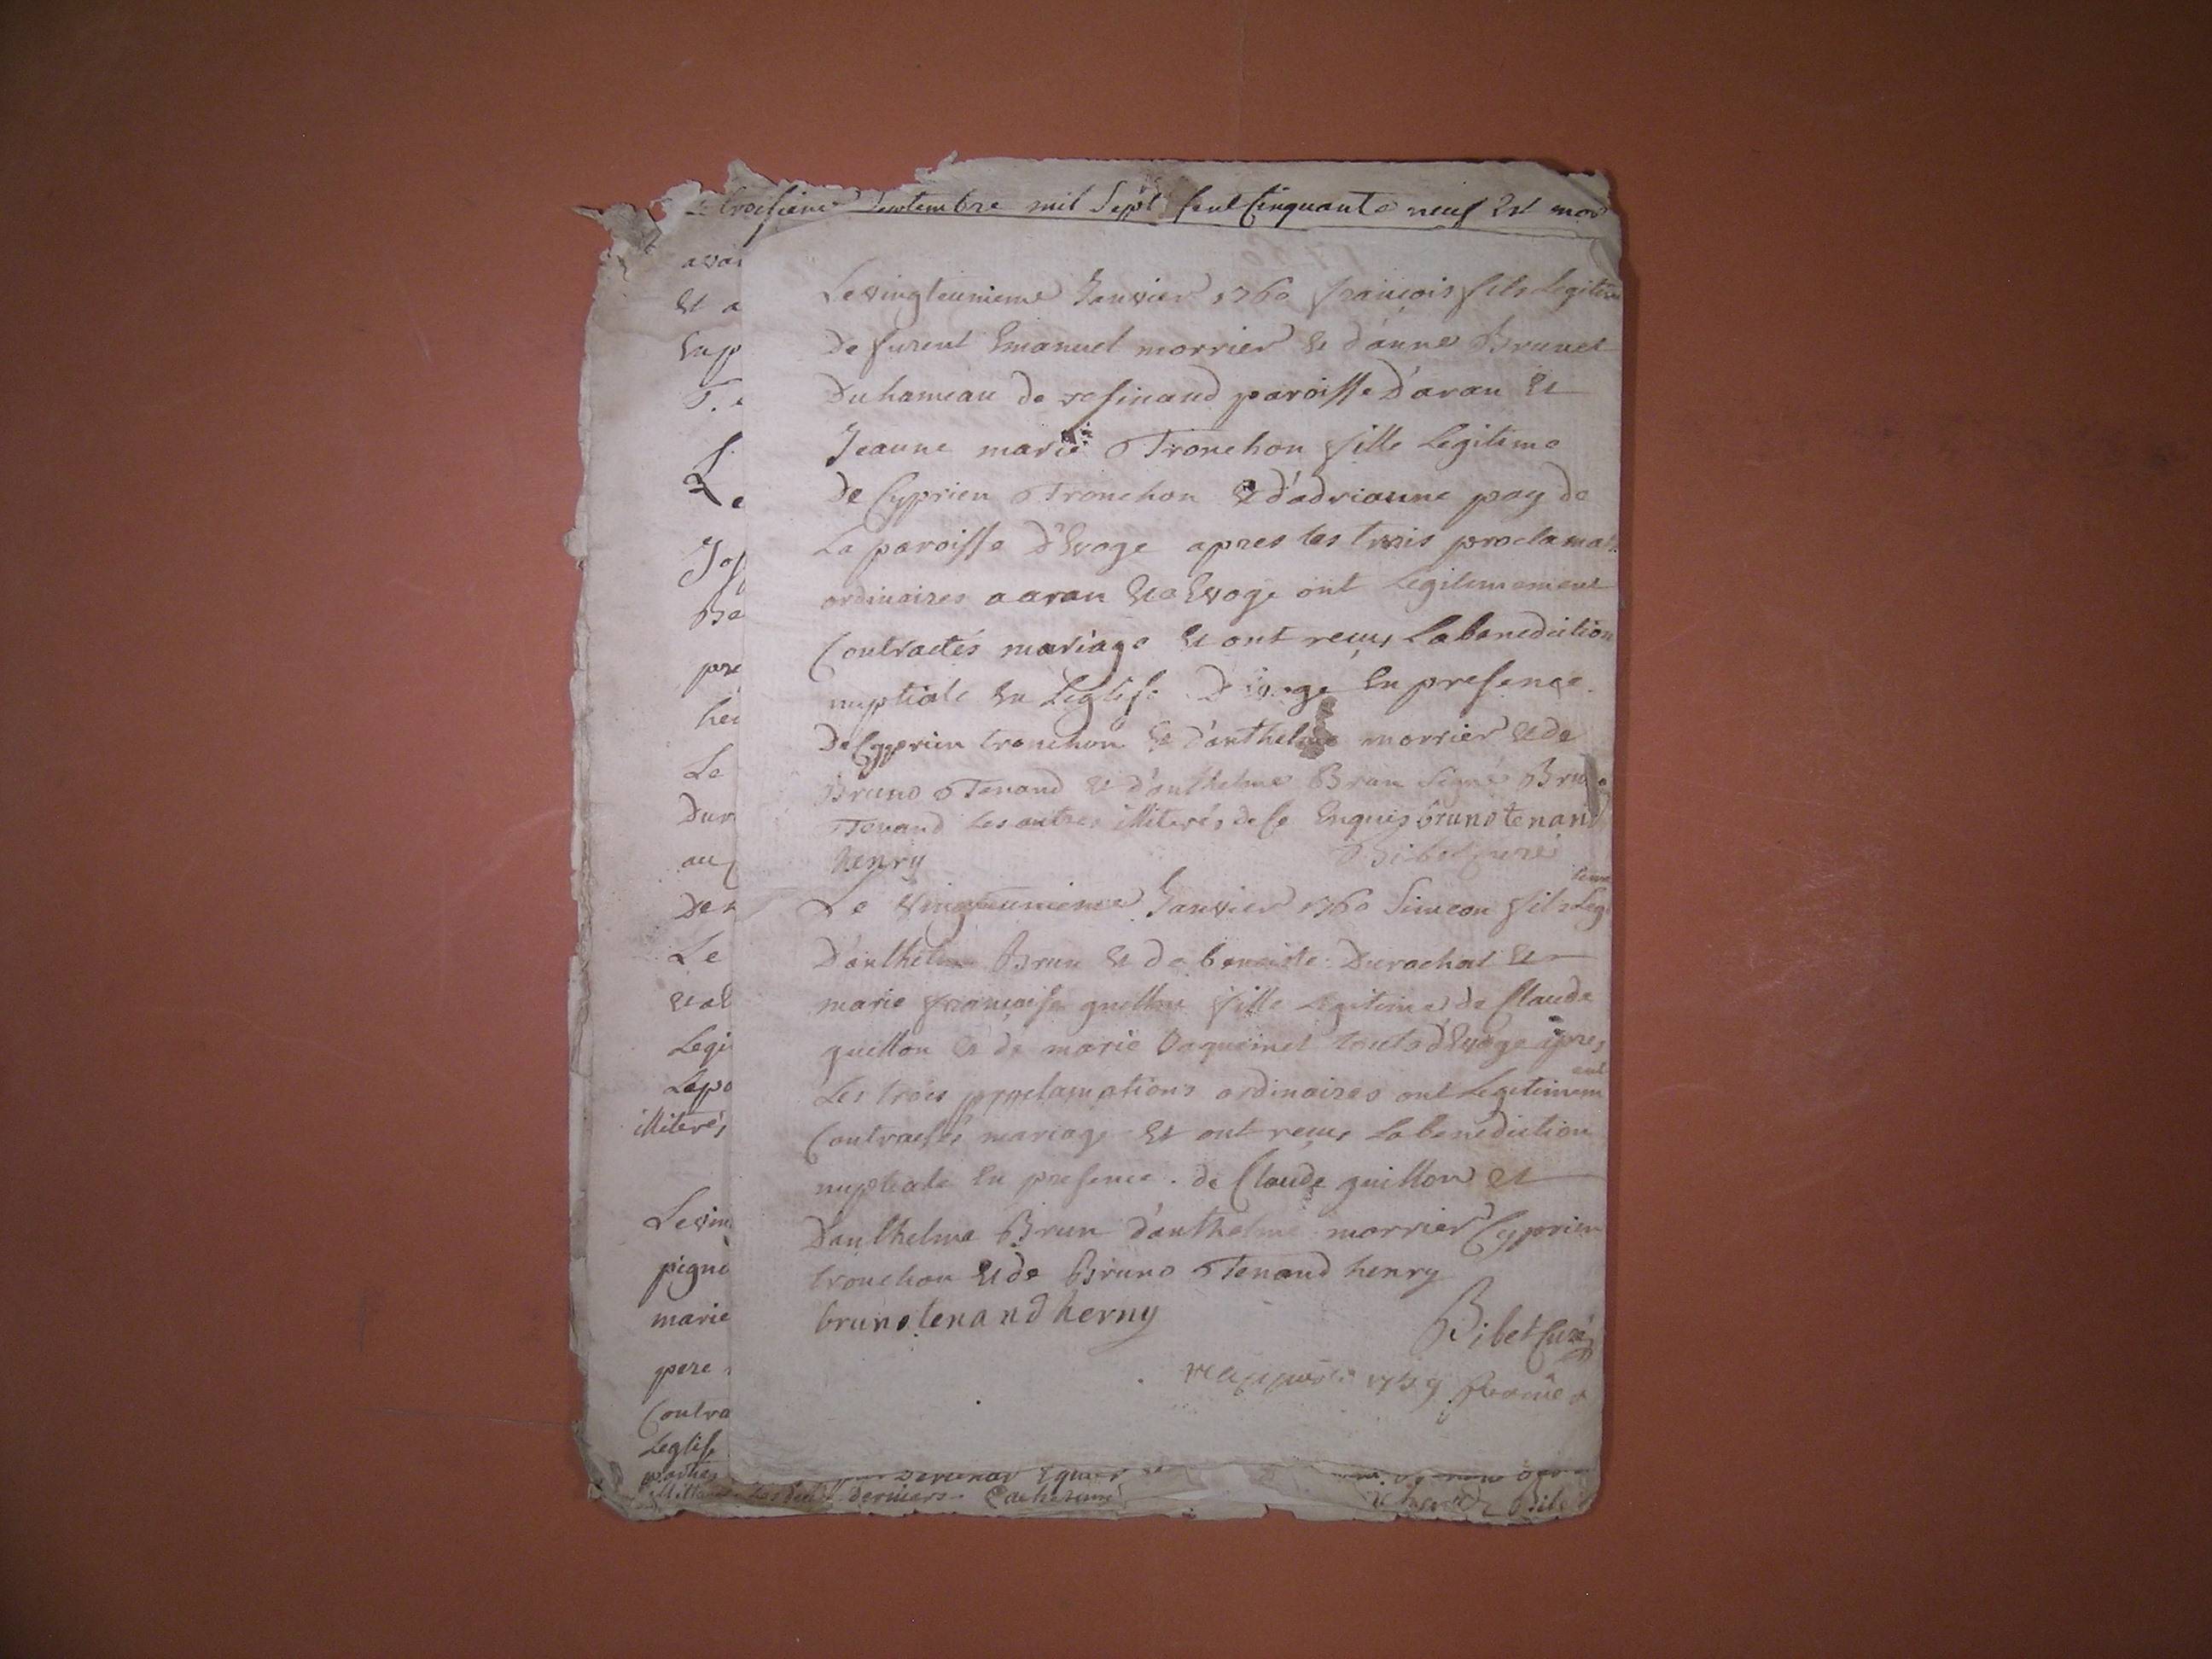 troisieme septembre mil Sept Cent Cinquante neuf Est mor
avai
Et a
Enp
Le
Jos
Be
pre
hen
Le
Dur
au
De
Le
et al
Legi
Lepo
illiterés
Levin
pigne
marie
pere
Contra
Leglise
parties
Levingteunieme Janvier 1760 françois fils Legitim
De furent Emanuel morrier Et d'anne Brunet
Du hameau de resinand paroisse D'aran Et
Jeanne marie Tronchon fille Legitime
De Cyprien Tronchon Et d'adrianne poy de
La paroisse D'Evoge apres les trois proclamat.
ordinaires a aran Et a Evoge ont Legitimement
Contractés mariage Et ont reçus La benediction
nuptiale En Leglise D'Evoge En presence
De Cyprien tronchon Et d'anthelme morrier Et de
Bruno Tenand Et d'anthelme Brun Signé Bruno
Tenand Les autres illiterés de ce Enquis bruno tenand
henry Bibet Curé
Le Vingteunieme Janvier 1760 Simeon fils Legitime
D'anthelme Brun Et de benoiste Durochat Et
marie françoise guillon fille Legitime de Claude
guillon Et de marie touts d'Evoge apres
Les trois proclamations ordinaires ont Legitimement
Contractés mariage Et ont reçus La benediction
nuptiale En presence de Claude guillon Et
D'anthelme Brun d'anthelme morrier Cyprien
tronchon Et de Bruno Tenand henry
bruno tenand herny
Bibet Curé
1759
derniers